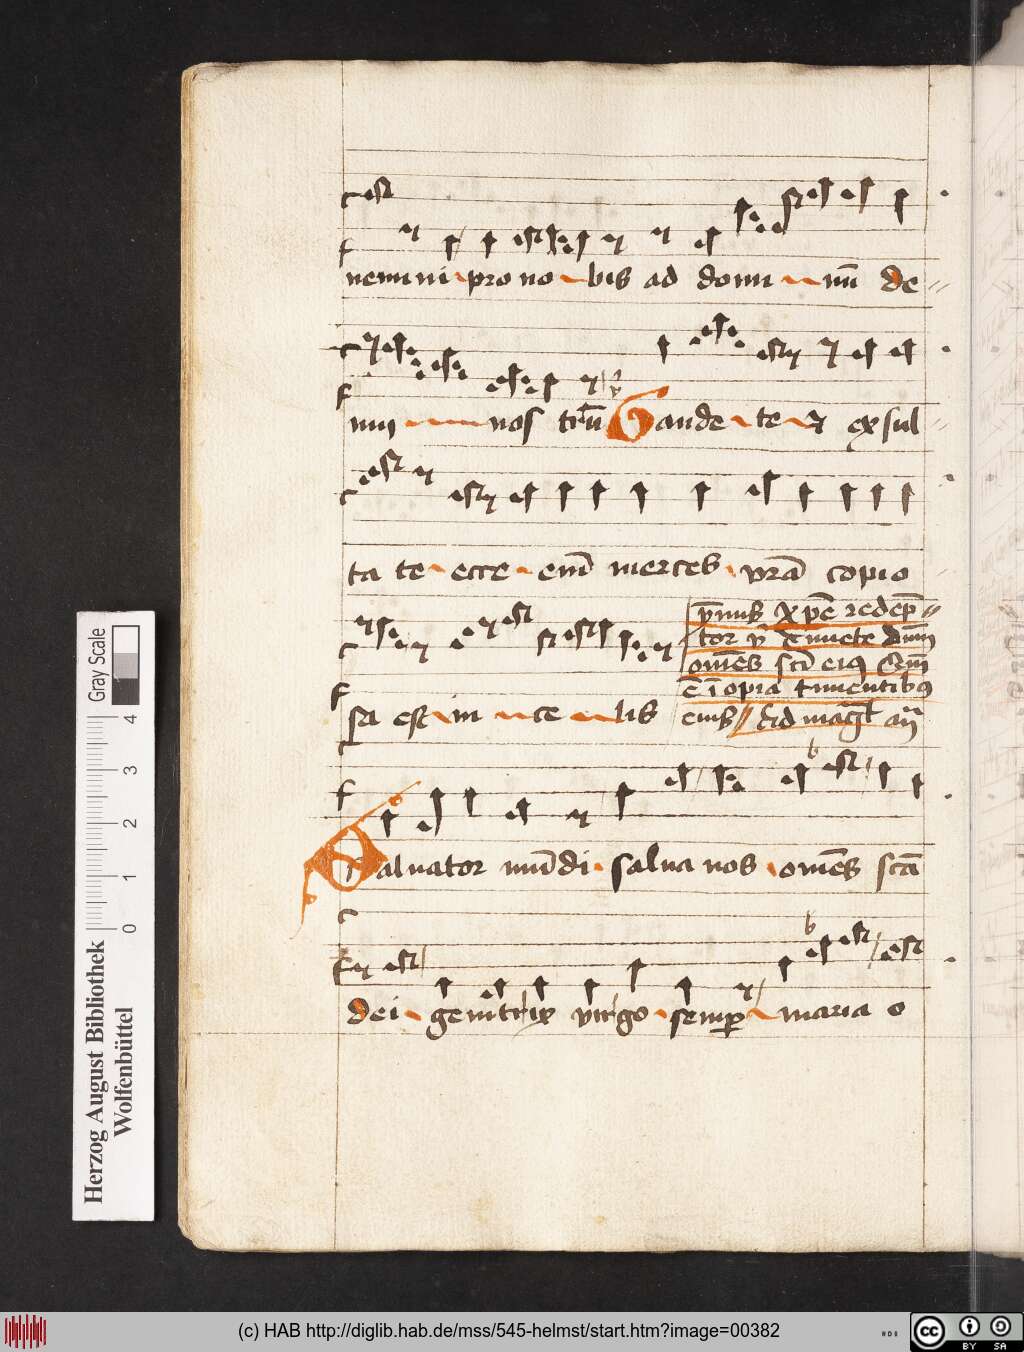 nemini pro no bis ad domi nu̅ de
nu nos tru̅ Gaude te ⁊ exsul
ta te ecce eni̅ merces vr̅a copio
sa est in ce lis
ymnus Xpe̅ redep̅
tor
om̅es sc̅i eius
e̅ i̅opia timentibus
eum Ad mag̅t an̅
Saluator mu̅di salua nos om̅es sc̅a
dei genitrix virgo semper maria o
Gray Scale
4
3
2
1
0
Herzog August Bibliothek
Wolfenbüttel
(c) HAB http://diglib.hab.de/mss/545-helmst/start.htm?image=00382
cc
BY SA